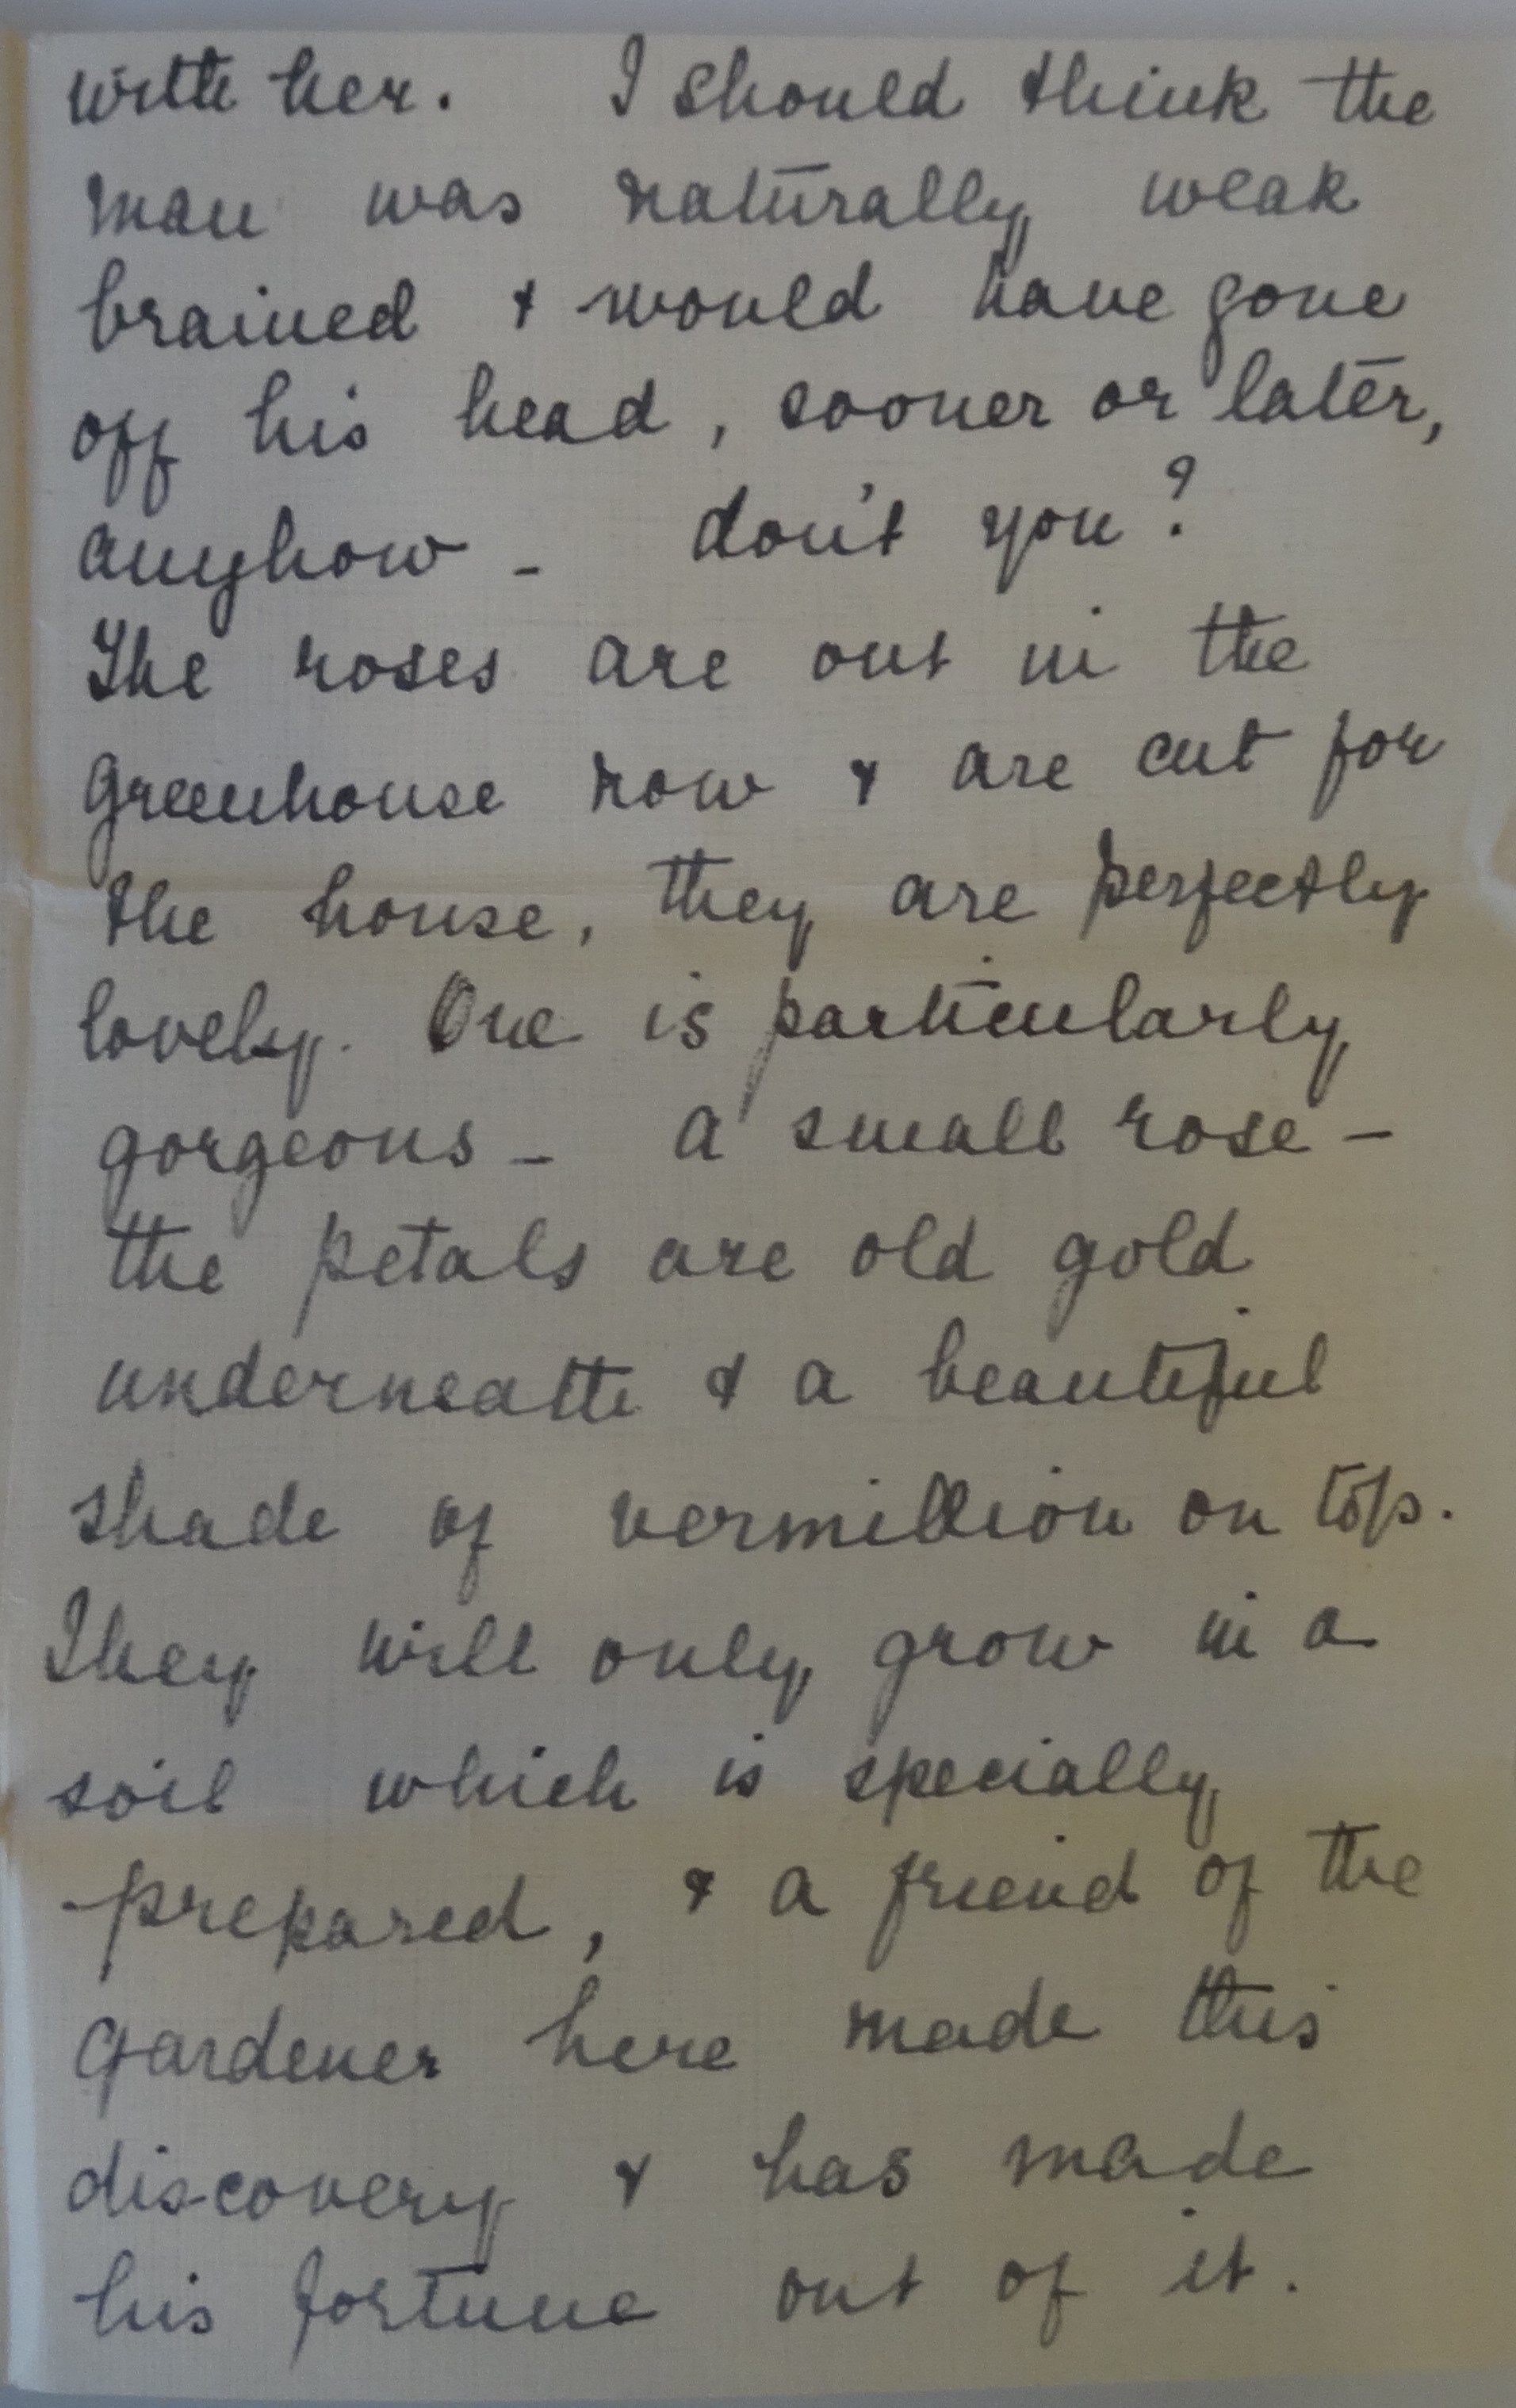 with her. I should think the
man was naturally weak
brained & would have gone
off his head, sooner or later,
anyhow - don't you?
The roses are out in the
greenhouse now & are cut for
the house, they are perfectly
lovely. One is particularly
gorgeous - a small rose -
the petals are old gold
underneath & a beautiful
shade of vermillion on top.
They will only grow in a
soil which is specially
prepared, & a friend of the
gardener here made this
discovery & has made
his fortune out of it.